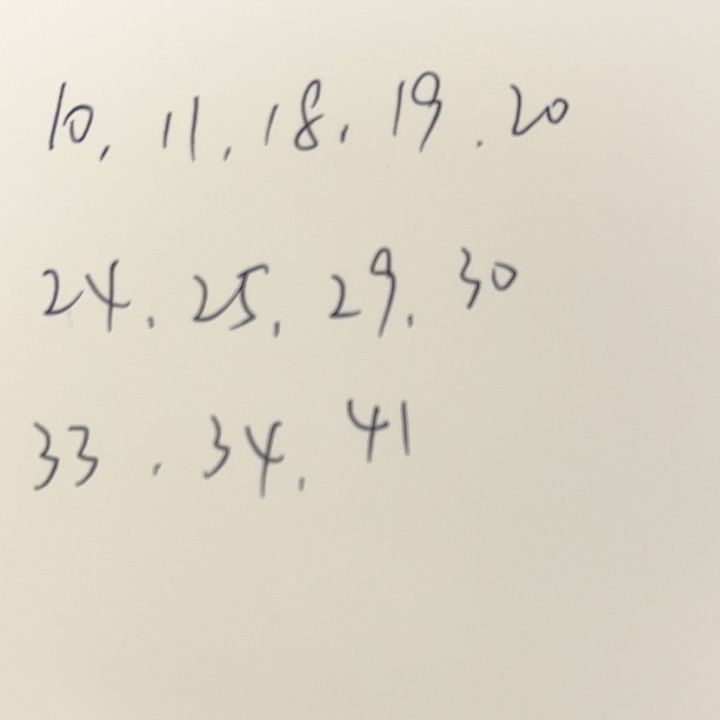 10, 11, 18, 19. 20
24. 25, 29, 30
33. 34, 41